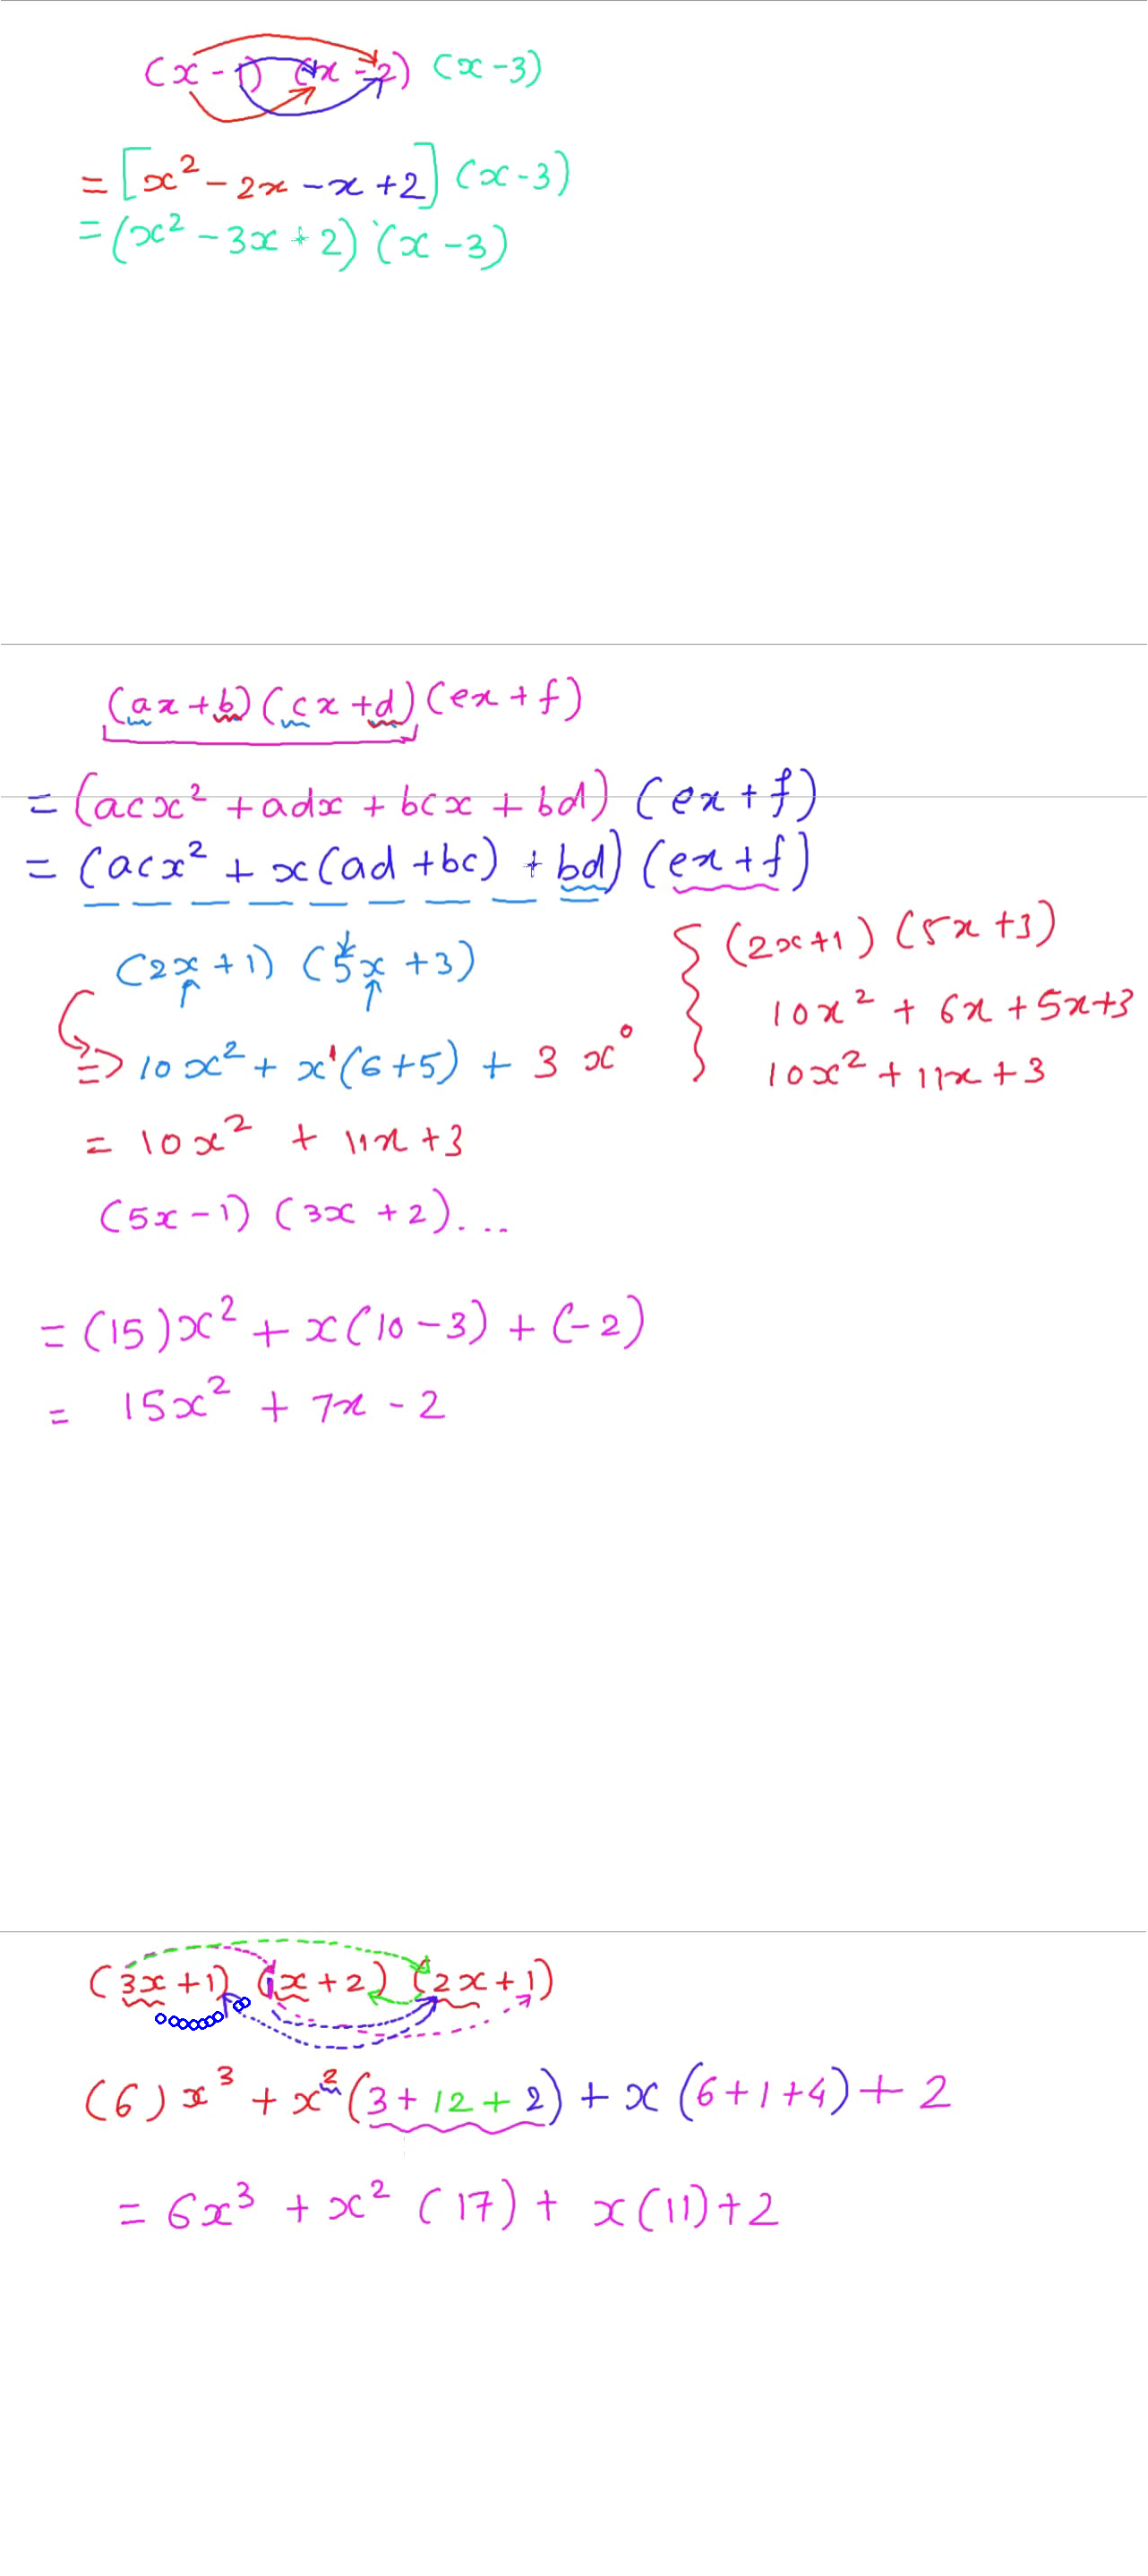 (x - 1) (x - 2) (x - 3)
= [x² - 2x - x + 2] (x - 3)
= (x² - 3x + 2) (x - 3)
(ax + b) (cx + d) (ex + f)
= (acx² + adx + bcx + bd) (ex + f)
= (acx² + x(ad + bc) + bd) (ex + f)
(2x + 1) (5x + 3)
=> 10x² + x¹(6 + 5) + 3 x⁰
= 10x² + 11x + 3
{ (2x + 1) (5x + 3)
10x² + 6x + 5x + 3
10x² + 11x + 3
(5x - 1) (3x + 2) ...
= (15)x² + x(10 - 3) + (-2)
= 15x² + 7x - 2
(3x + 1) (1x + 2) (2x + 1)
(6) x³ + x² (3 + 12 + 2) + x (6 + 1 + 4) + 2
= 6x³ + x² (17) + x (11) + 2